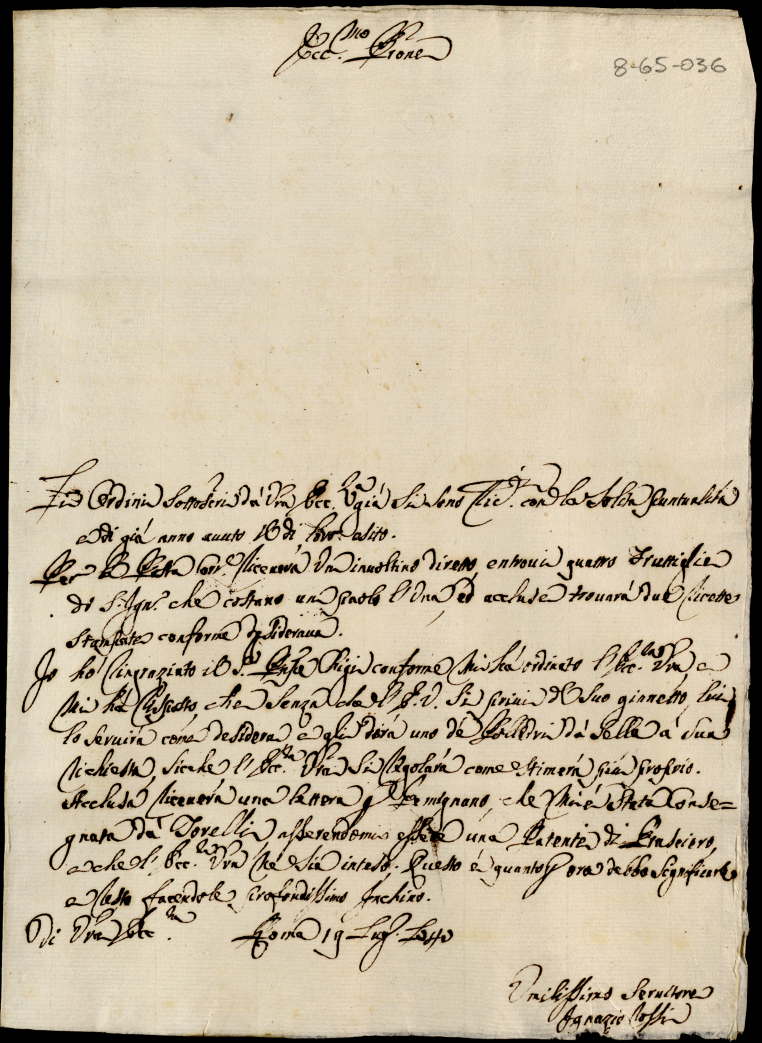 Ecc.mo Prone
8-65-036
Gli Ordini sottoscri da Vra Ecc.za già si sono con la solita puntualità
e di già anno auuto il di loro esito.
Per la Posta riceuerà Un inuoltino diretto, entroui quattro
di S. Ign.o che costano un paolo l'Una, ed accluse trouarà due Ricette
stampate conforme desideraua.
Io hò ringraziato il S.r Pnpe Chigi conforme Mi hà ordinato l'Ecc.za Vra, e
Mi hà risposto, che senza che l'E.V. Si priui del Suo ginnetto, lui
lo seruirà come desidera e gli darà uno de Polledri da Sella à Sua
richiesta, siche l'Ecc.za Vra Si regolarà come stimerà più proprio.
Acclusa riceuerà una lettera p Gemignano, che Mi è stata Conse=
gnata da Torelli asserendomi essere una Patente di
e che l'Ecc.za Vra Né sia inteso. Questo è quanto p ora debbo Significarle
e resto facendole profondissimo Inchino.
Di Vra Ecc.za Roma 19 Lug.
Umilissimo Seruitore
Ignazio Rossi